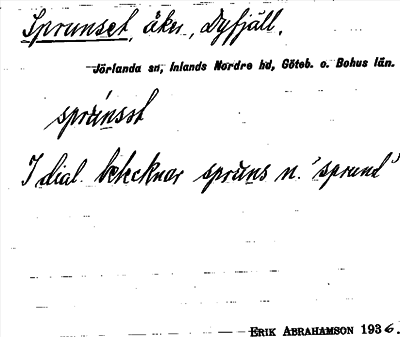 Sprunset, åker, Dyfjäll.
Jörlanda sn, Inlands Nordre hd, Göteb. o. Bohus län.
språnsst
I dial. betecknar språns n. 'sprund'
ERIK ABRAHAMSON 1936.